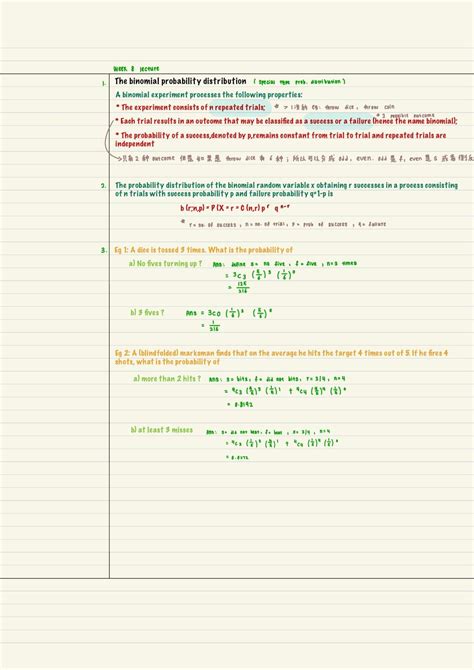 Week 8 lecture
1. The binomial probability distribution ( special type prob. distribution )
A binomial experiment processes the following properties:
* The experiment consists of n repeated trials; * > 1 eg: throw dice, throw coin
* 2 possible outcome
* Each trial results in an outcome that may be classified as a success or a failure (hence the name binomial);
* The probability of a success,denoted by p,remains constant from trial to trial and repeated trials are
independent
2 outcome throw dice 6 odd, even. odd even
2. The probability distribution of the binomial random variable x obtaining r successes in a process consisting
of n trials with success probability p and failure probability q=1-p is
b (r;n,p) = P (X = r = C (n,r) p^r q^n-r
* r = no. of success, n = no. of trial, p = prob. of success, q = failure
3. Eg 1: A dice is tossed 3 times. What is the probability of
a) No fives turning up ? Ans: define s = no five, f = five, n=3 times
= 3C3 (5/6)^3 (1/6)^0
= 125/216
b) 3 fives ? Ans = 3C0 (1/6)^3 (5/6)^0
= 1/216
Eg 2: A (blindfolded) marksman finds that on the average he hits the target 4 times out of 5. If he fires 4
shots, what is the probability of
a) more than 2 hits ? Ans: s = hits, f = did not hits, n=4
= 0.8192
b) at least 3 misses Ans: s= did not hit, n=4
= 0.0272